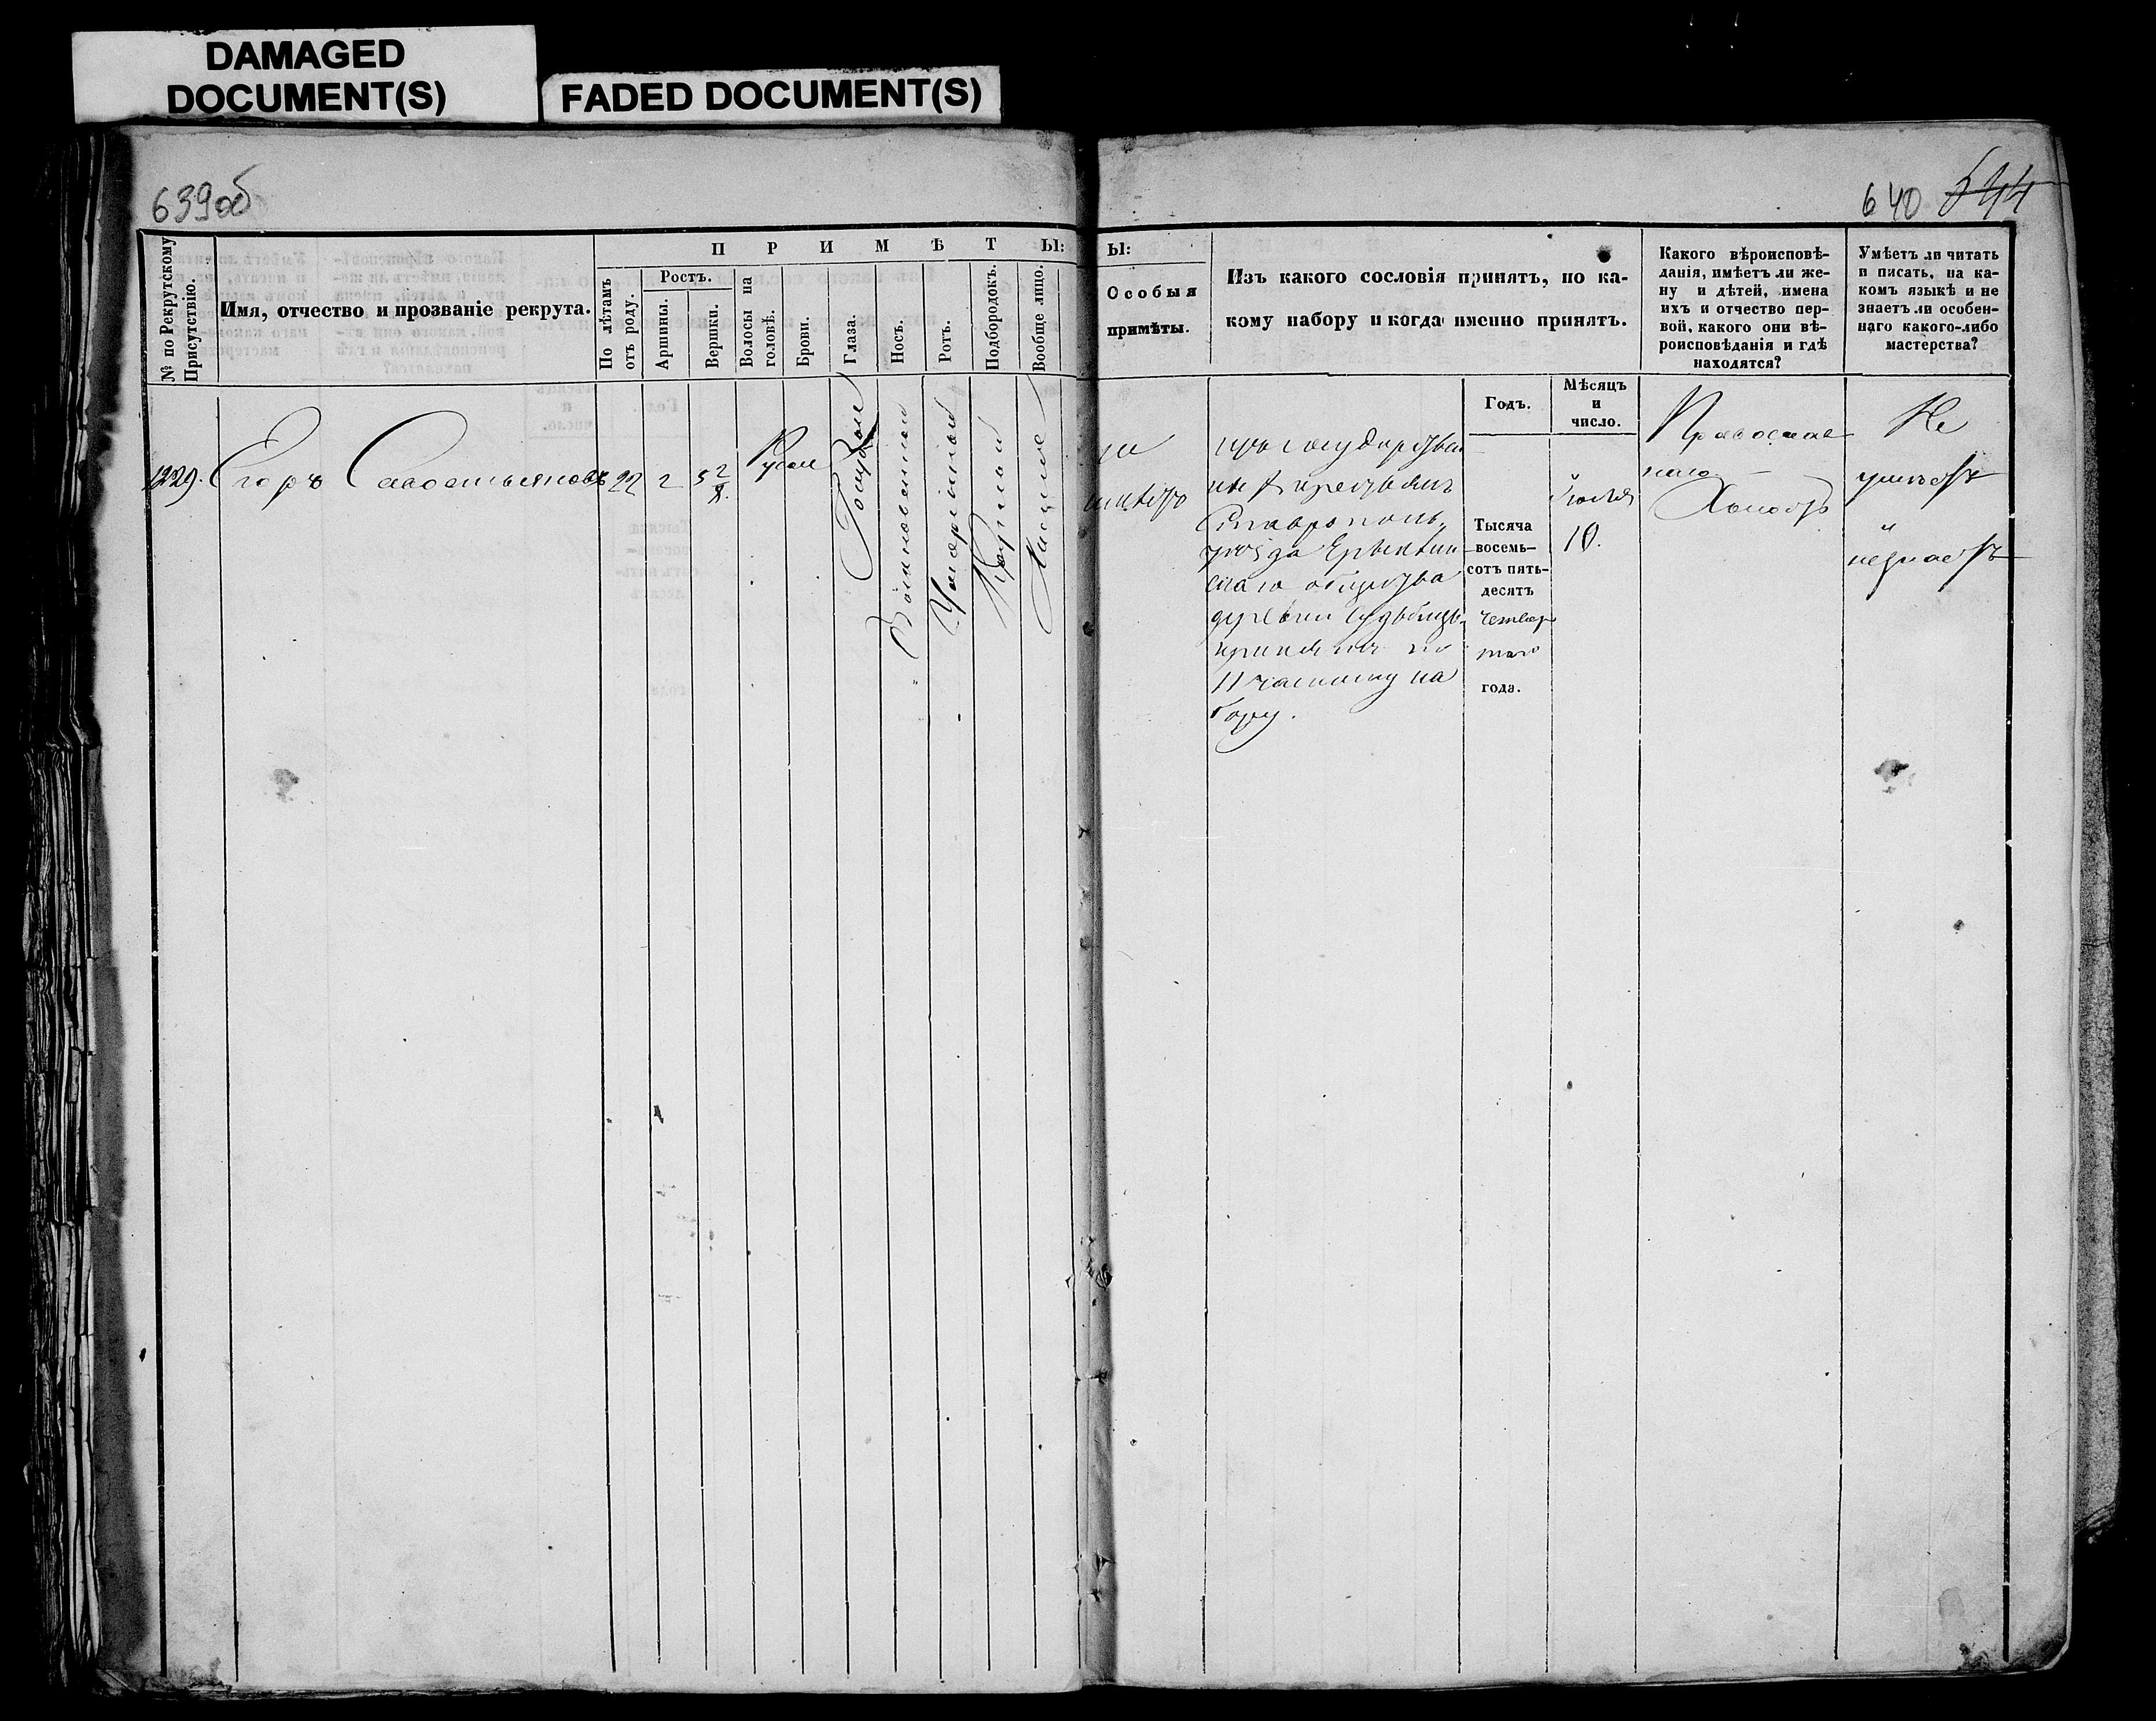 DAMAGED
DOCUMENT(S)
FADED DOCUMENT(S)
639об
640 644
№ по Рекрутскому
Присутствію.
Имя, отчество и прозваніе рекрута.
П Р И М Ѣ Т Ы:
По лѣтамъ
отъ роду.
Ростъ.
Аршины.
Вершки.
Волосы на
головѣ.
Брови.
Глаза.
Носъ.
Ротъ.
Подбородокъ.
Вообще лицо.
Ы:
Особыя
примѣты.
Изъ какого сословія принятъ, по ка-
кому набору и когда именно принятъ.
Годъ.
Мѣсяцъ
и
число.
Какого вѣроисповѣ-
данія, имѣетъ ли же-
ну и дѣтей, имена
ихъ и отчество пер-
вой, какого они вѣ-
роисповѣданія и гдѣ
находятся?
Умѣетъ ли читать
и писать, на ка-
комъ языкѣ и не
знаетъ ли особен-
наго какого-либо
мастерства?
1229. Егоръ Савостьяновъ 22 2 5 2/8 Русые
Умеренный
Круглый
Чистое
изъ государствен
ныхъ крестьянъ
Ставрополь.
уѣзда
скаго общества
деревни
принятъ по
11 частному на
бору.
Тысяча
восемь-
сотъ пять-
десятъ
четвер
таго
года.
Іюля
10.
Православ
наго
Холостъ
Не
умѣетъ
и
незнаетъ